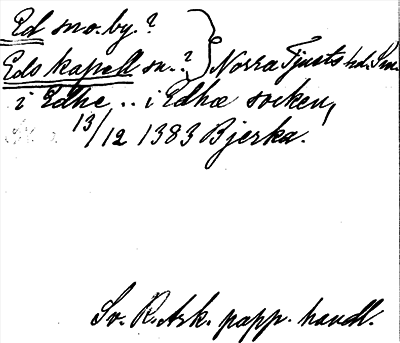 Ed sno. by.?
Eds kapell sn.?} Norra Tjusts hd. Sm.
i Edhe .. i Edhæ socken,
13/12 1383 Bjerka.
Sv. R. Ark. papp. handl.